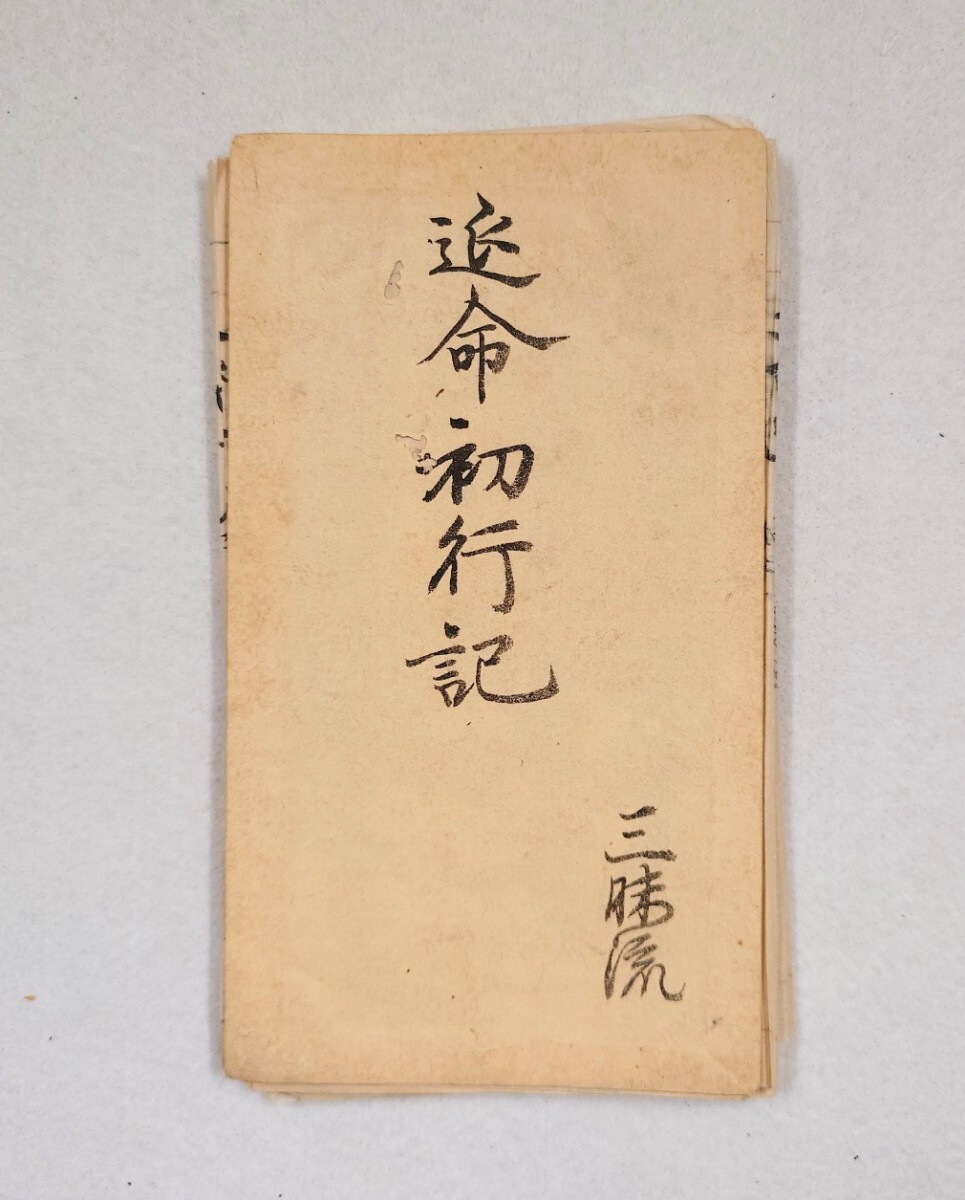 延命初行記
三昧流